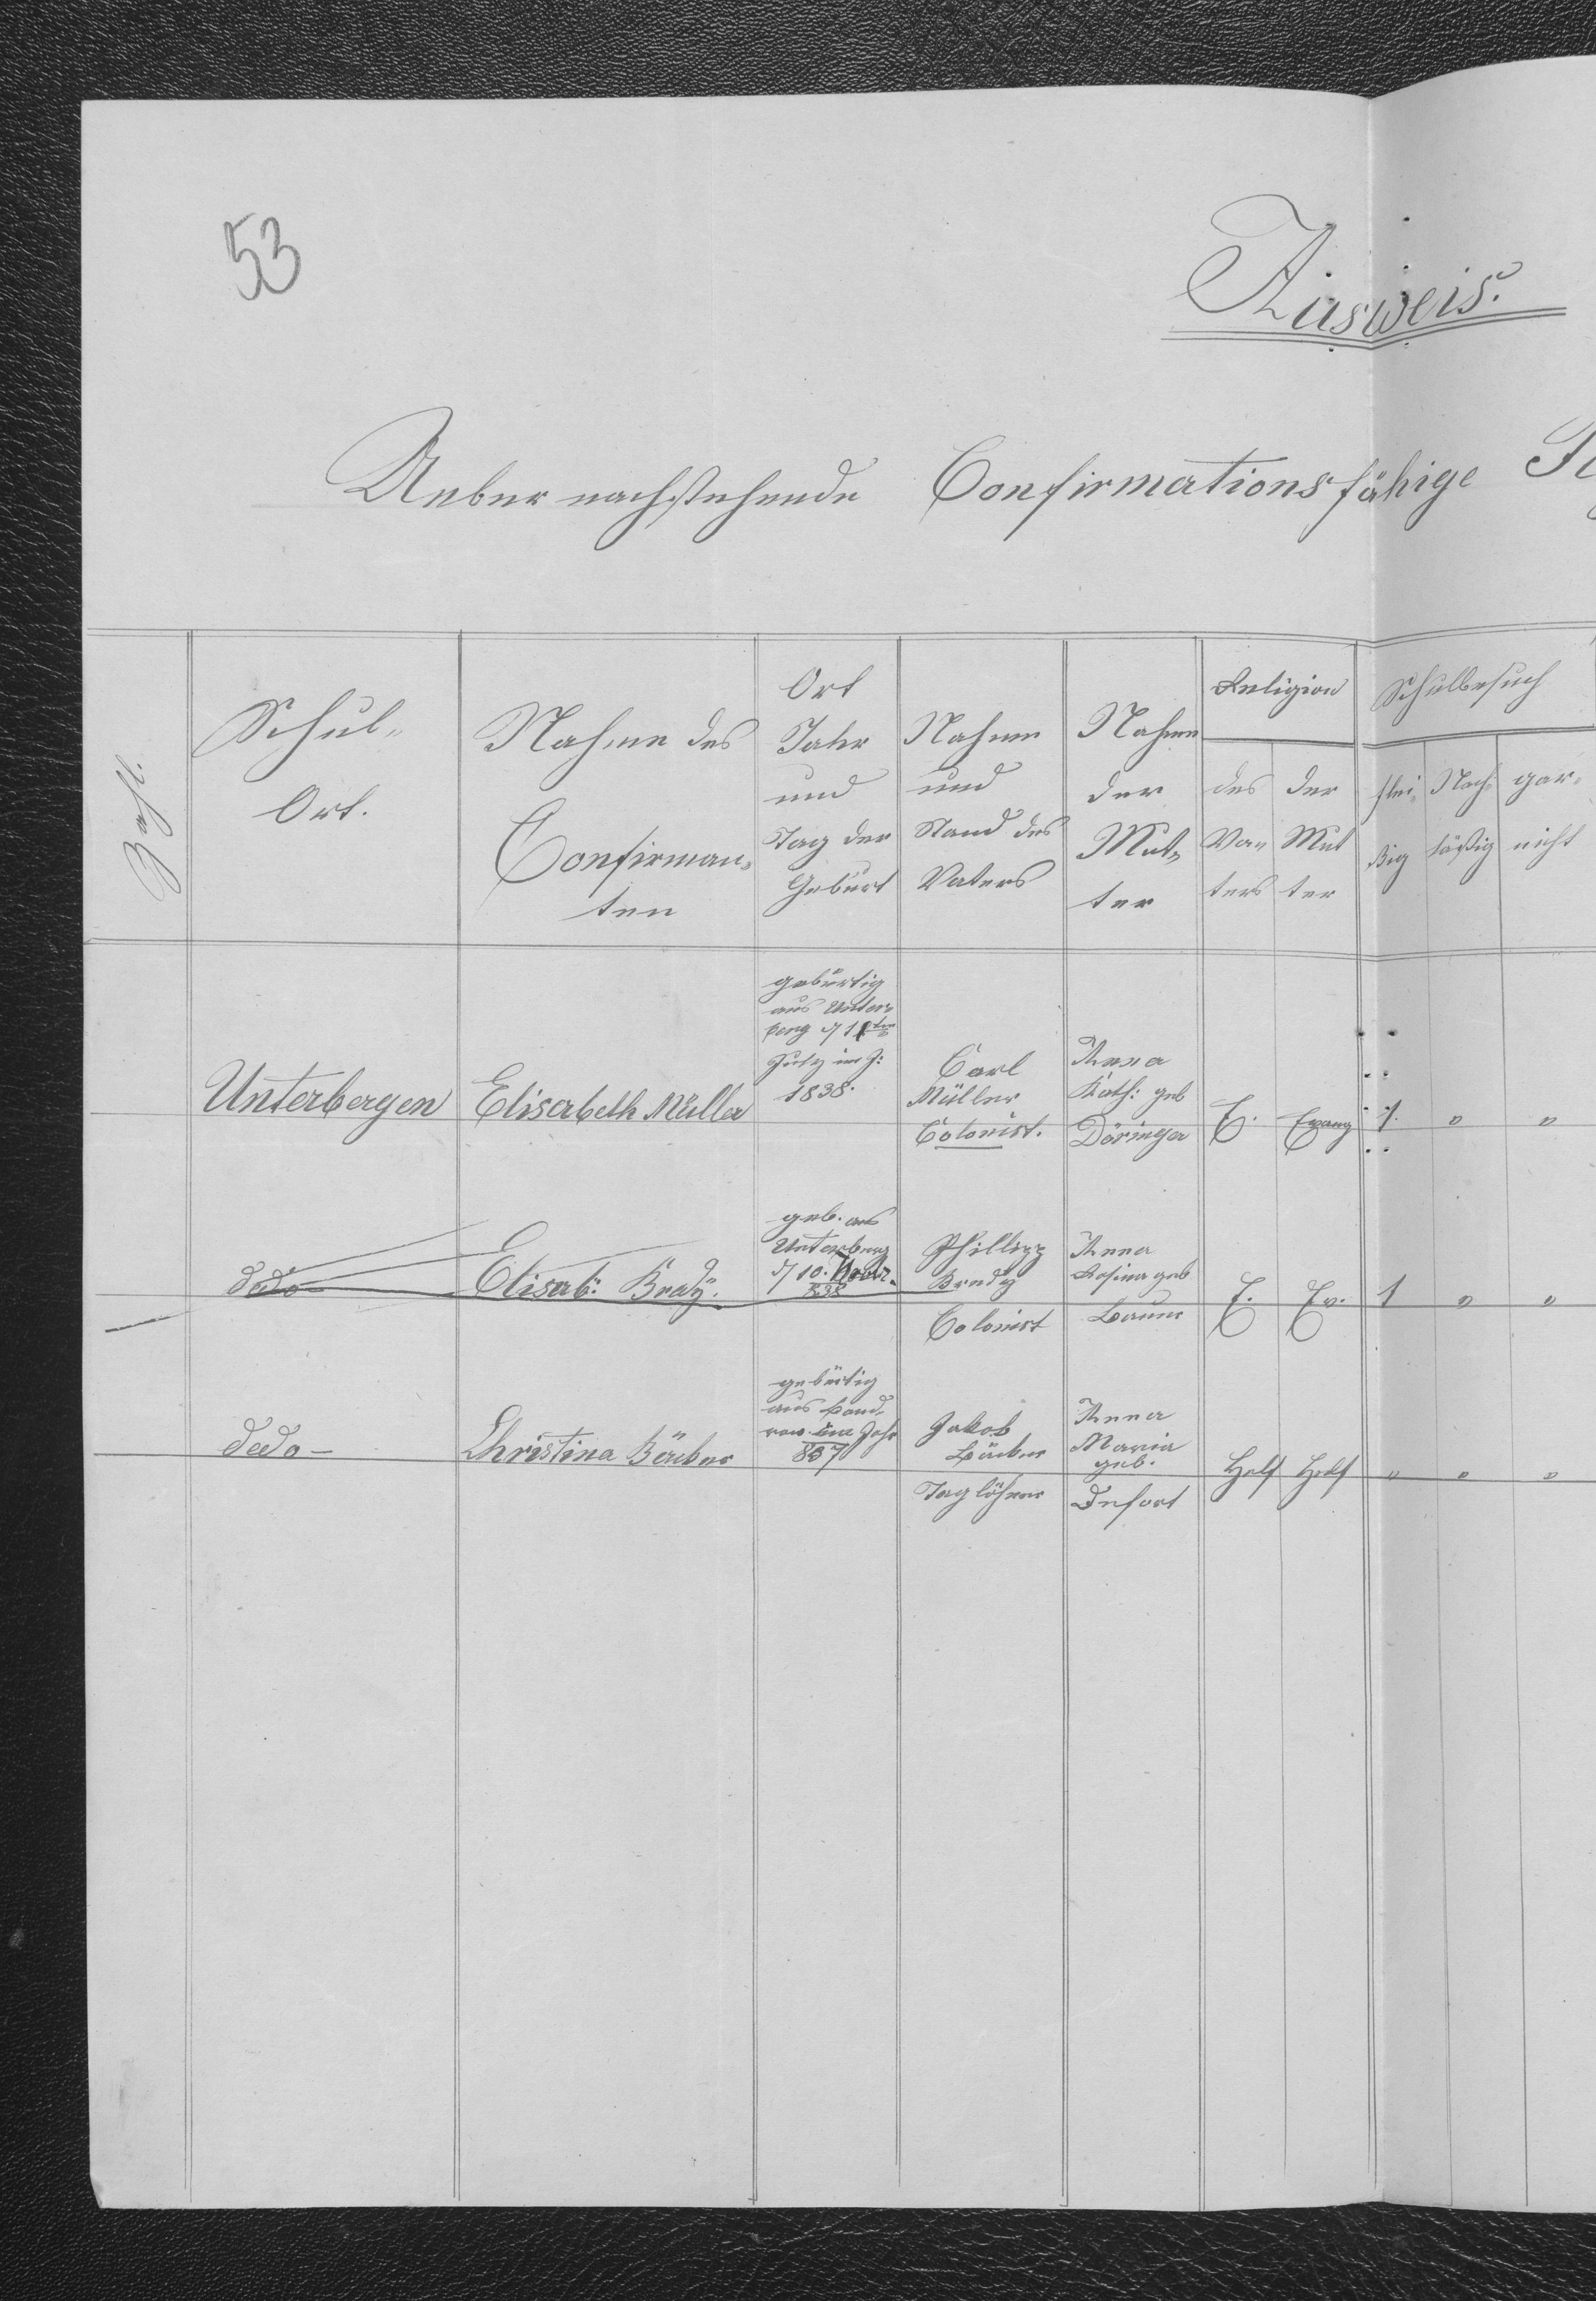 53
Ausweis.
Ueber nachstehende Confirmationsfähige
Zahl.
Schul-
Ort.
Nahme des
Confirman-
ten
Ort
Jahr
und
Tag der
Geburt
Nahme
und
Stand des
Vaters
Nahme
der
Mut-
ter
Religion
des
Va-
ters
der
Mut
ter
Schulbesuch
flei-
ßig
Nach-
läßig
gar-
nicht
Unterbergen
Elisabeth Müller
gebürtig
aus Unter-
July im J:
1838.
Carl
Müller
Colonist.
Anna
Kath: geb
Döringer
E.
Evang
1.
"
"
dedo
Elisab: Bredÿ.
geb. aus
Unterberg
d 10.
838
Phillipp
Bredy
Colonist
Anna
Rosina geb
Baum
E.
Ev.
1
"
"
dedo -
Christina
gebürtig
aus
im Jahr
837
Jakob
Taglöhner
Anna
Maria
geb.
Helf
Helf
"
"
"